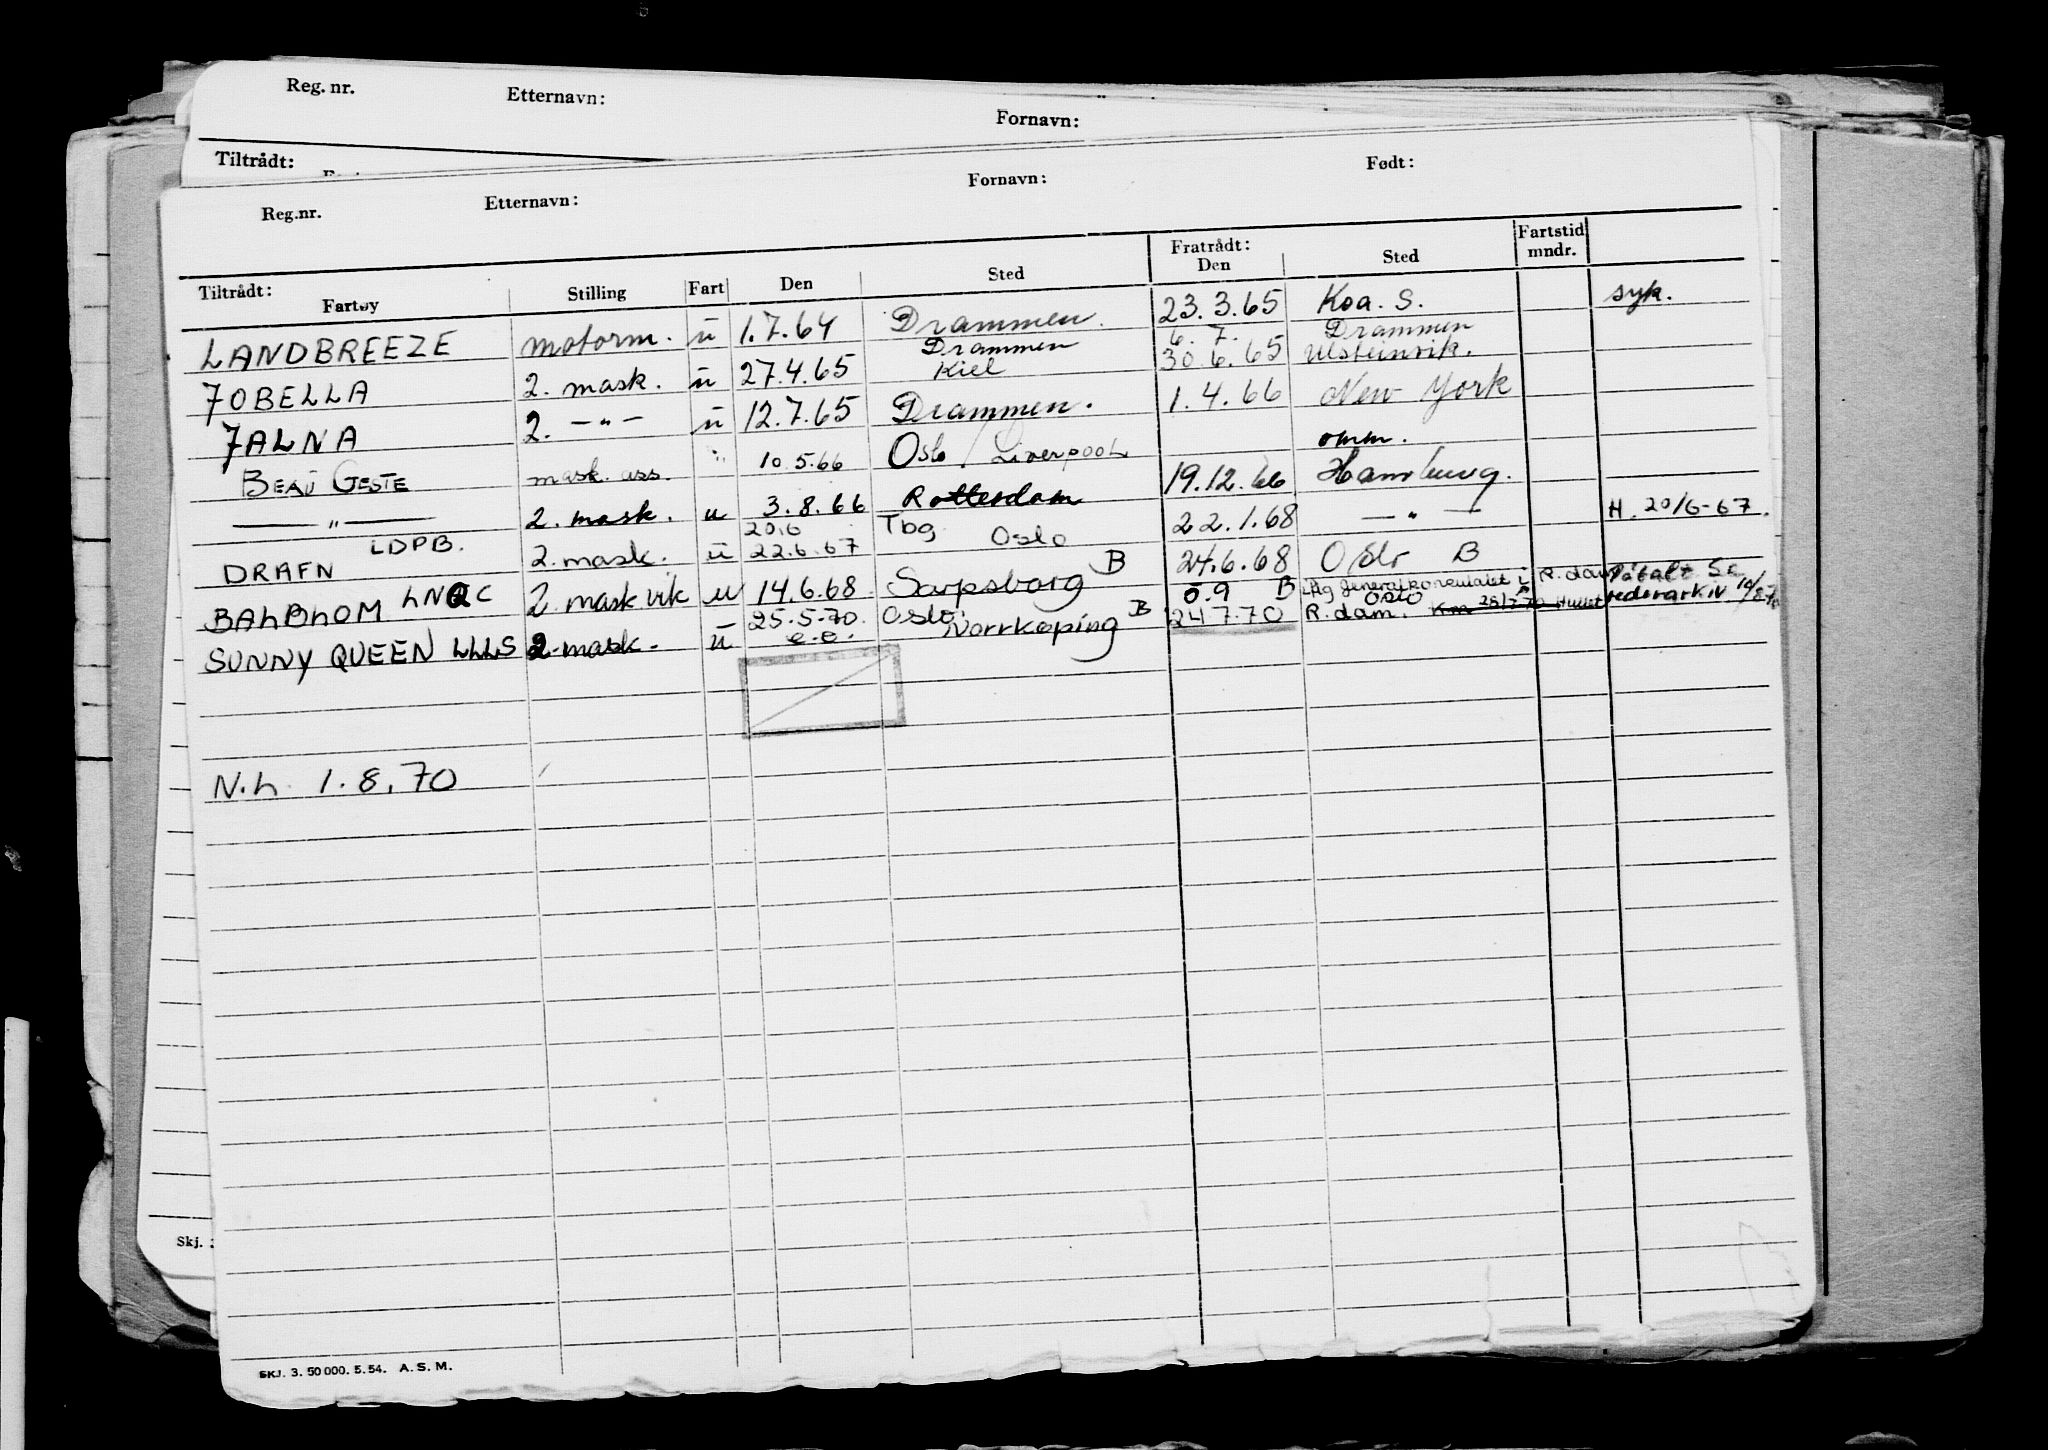 Reg. nr. Etternavn: Fornavn:
Tiltrådt:
Reg.nr. Etternavn: Fornavn: Født:
Tiltrådt: Fartøy Stilling Fart Den Sted Fratrådt: Den Sted Fartstid mndr.
LANDBREEZE motorm. u 1.7.64 Drammen. 23.3.65 Koa. S. syk.
JOBELLA 2. mask. u 27.4.65 Drammen Kiel 6.7. 30.6.65 Drammen Ulsteinvik.
JALNA 2. —"— u 12.7.65 Drammen. 1.4.66 New York
BEAU GESTE mask. ass. 10.5.66 Oslo / Liverpool omm.
—"— 2. mask. u 3.8.66 Rotterdam 19.12.66 Hamburg.
DRAFN LDPB. 2. mask. u 20.6 22.6.67 Tbg Oslo 22.1.68 —"— H. 20/6-67.
BALBLOM LNQC 2 mask vik u 14.6.68 Sarpsborg B 24.6.68 Oslo B
SUNNY QUEEN LLLS 2. mask. u 25.5.70. e.o. Oslo: Norrköping B 5.9 B 24.7.70 Oslo R. dam. generalkonsulatet i R. dam
N.L. 1.8.70
Skj.
SKJ. 3. 50 000. 5. 54. A. S. M.